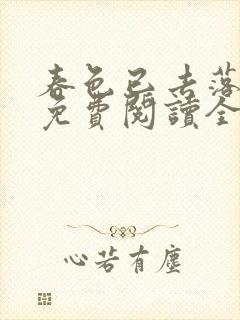 春色已去落
免費閱讀全
心若有塵